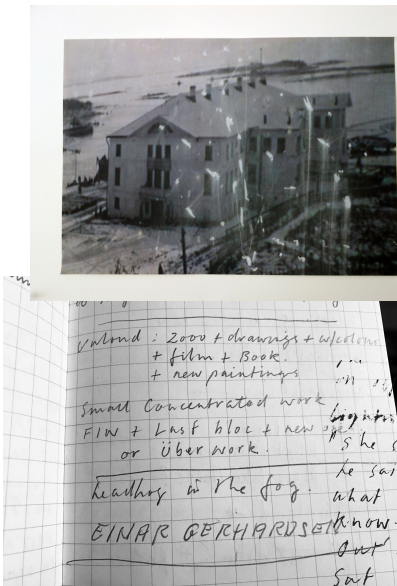 Valand : 2000 + drawings + w/colour
+ film + Book.
+ new paintings
Small Concentrated work
FIW + Last bloc + new
or über work.
in the fog.
EINAR GERHARDSEN
"she s
he sai
what
know.
out
sat